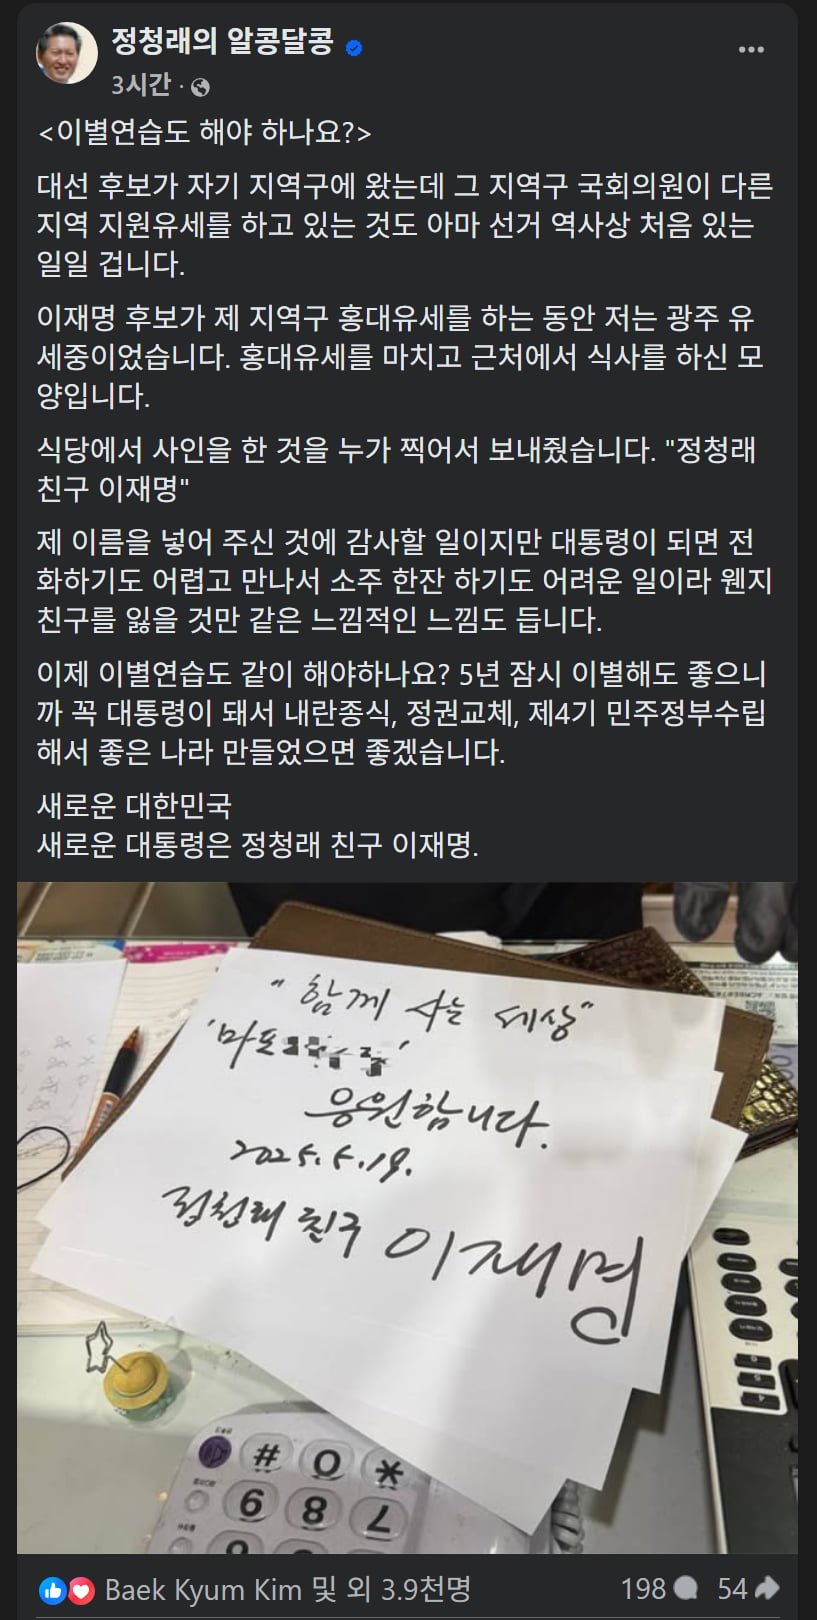 정청래의 알콩달콩
3시간 ·
<이별연습도 해야 하나요?>
대선 후보가 자기 지역구에 왔는데 그 지역구 국회의원이 다른
지역 지원유세를 하고 있는 것도 아마 선거 역사상 처음 있는
일일 겁니다.
이재명 후보가 제 지역구 홍대유세를 하는 동안 저는 광주 유
세중이었습니다. 홍대유세를 마치고 근처에서 식사를 하신 모
양입니다.
식당에서 사인을 한 것을 누가 찍어서 보내줬습니다. "정청래
친구 이재명"
제 이름을 넣어 주신 것에 감사할 일이지만 대통령이 되면 전
화하기도 어렵고 만나서 소주 한잔 하기도 어려운 일이라 웬지
친구를 잃을 것만 같은 느낌적인 느낌도 듭니다.
이제 이별연습도 같이 해야하나요? 5년 잠시 이별해도 좋으니
까 꼭 대통령이 돼서 내란종식, 정권교체, 제4기 민주정부수립
해서 좋은 나라 만들었으면 좋겠습니다.
새로운 대한민국
새로운 대통령은 정청래 친구 이재명.
"함께 사는 세상"
'마포 '
응원합니다.
2025.5.19.
정청래 친구 이재명
# 0 *
9 8 7
Baek Kyum Kim 및 외 3.9천명
198 54